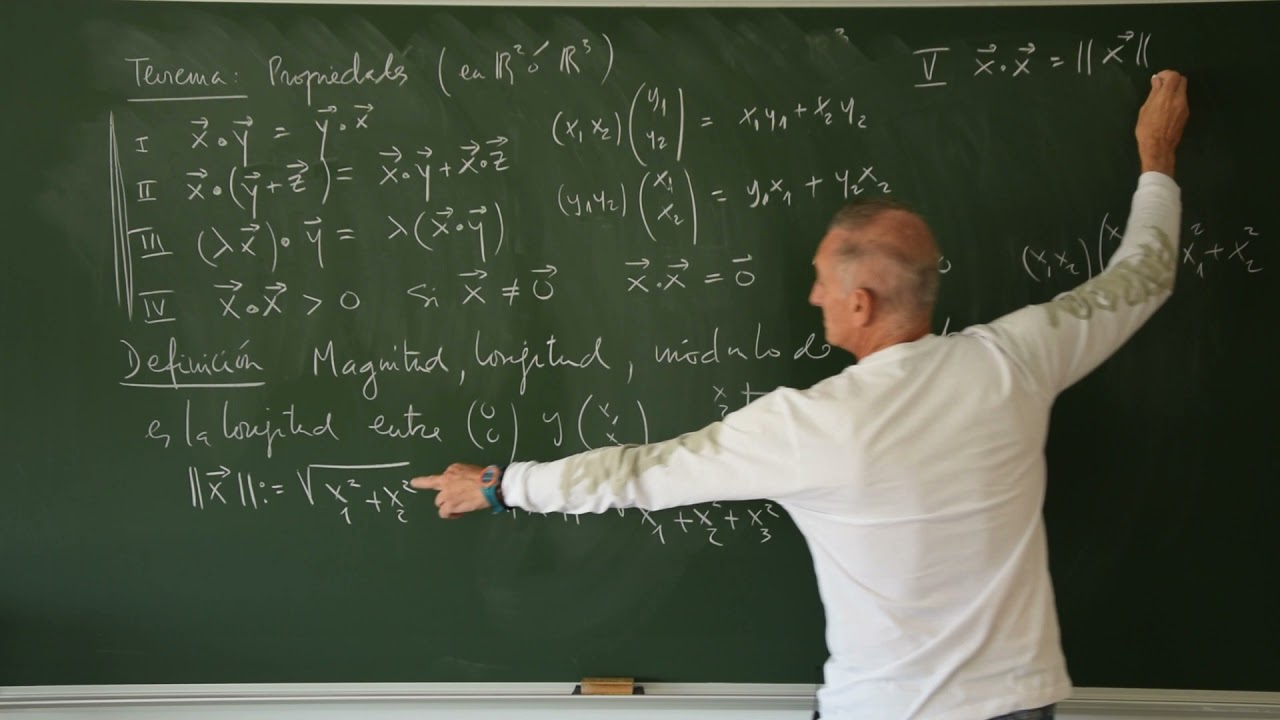 Teorema: Propiedades (en ℝ² ó ℝ³)
I x⃗∘y⃗ = y⃗∘x⃗
II x⃗∘(y⃗+z⃗) = x⃗∘y⃗ + x⃗∘z⃗
III (λx⃗)∘y⃗ = λ(x⃗∘y⃗)
IV x⃗∘x⃗ > 0 si x⃗ ≠ 0⃗ x⃗·x⃗ = 0⃗
(x₁ x₂)(y₁ y₂) = x₁y₁ + x₂y₂
(y₁ y₂)(x₁ x₂) = y₁x₁ + y₂x₂
V x⃗·x⃗ = ||x⃗||
(x₁ x₂)(x x₁² + x₂²
Definición Magnitud, longitud, módulo de
es la longitud entre (0 0) y (x₁ x
||x⃗|| := √x₁² + x₂²
√x₁ + x₂² + x₃²